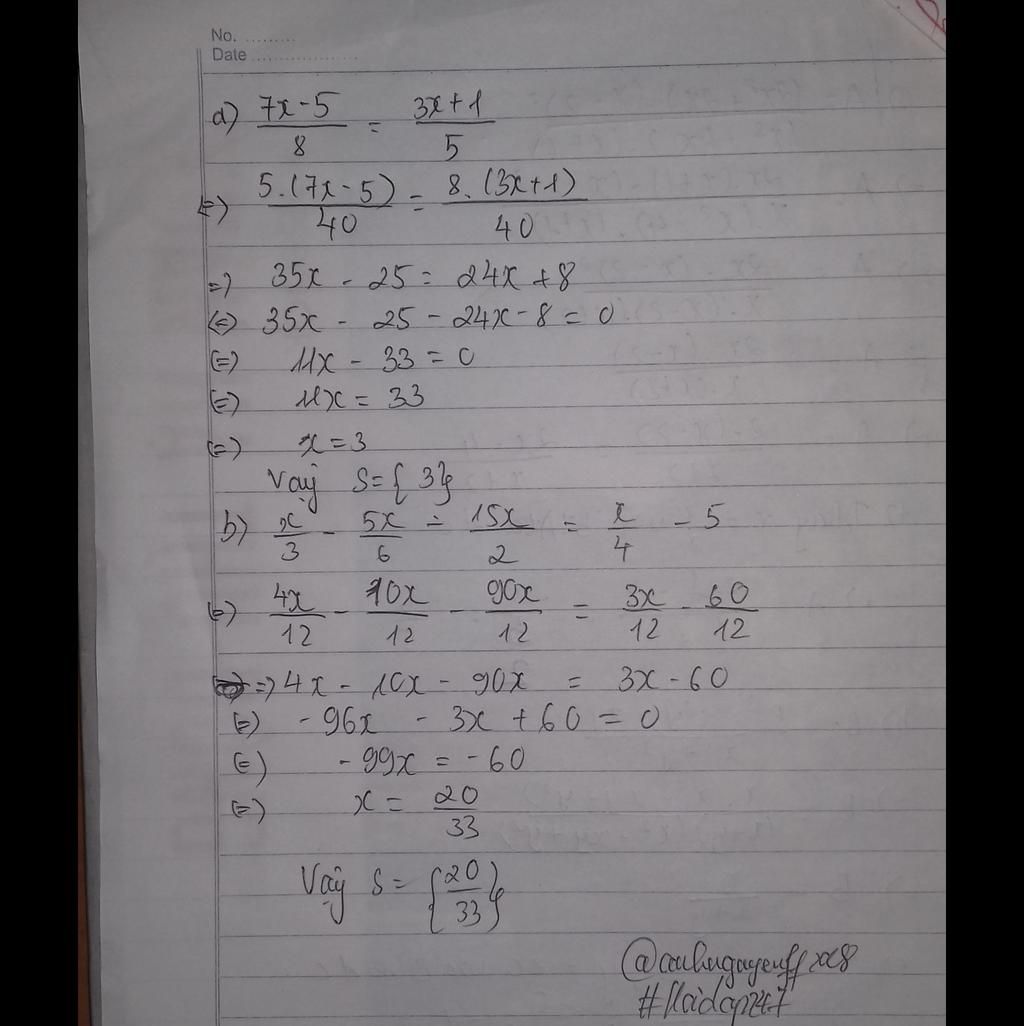 No. .........
Date ...................
a) (7x-5)/8 = (3x+1)/5
(=) 5.(7x-5)/40 = 8.(3x+1)/40
=) 35x - 25 = 24x + 8
(=) 35x - 25 - 24x - 8 = 0
(=) 11x - 33 = 0
(=) 11x = 33
(=) x = 3
Vậy S = { 3}
b) x/3 - 5x/6 - 15x/2 = x/4 - 5
(=) 4x/12 - 10x/12 - 90x/12 = 3x/12 - 60/12
=) 4x - 10x - 90x = 3x - 60
(=) - 96x - 3x + 60 = 0
(=) - 99x = - 60
(=) x = 20/33
Vậy S = {20/33}
#Hoidap247